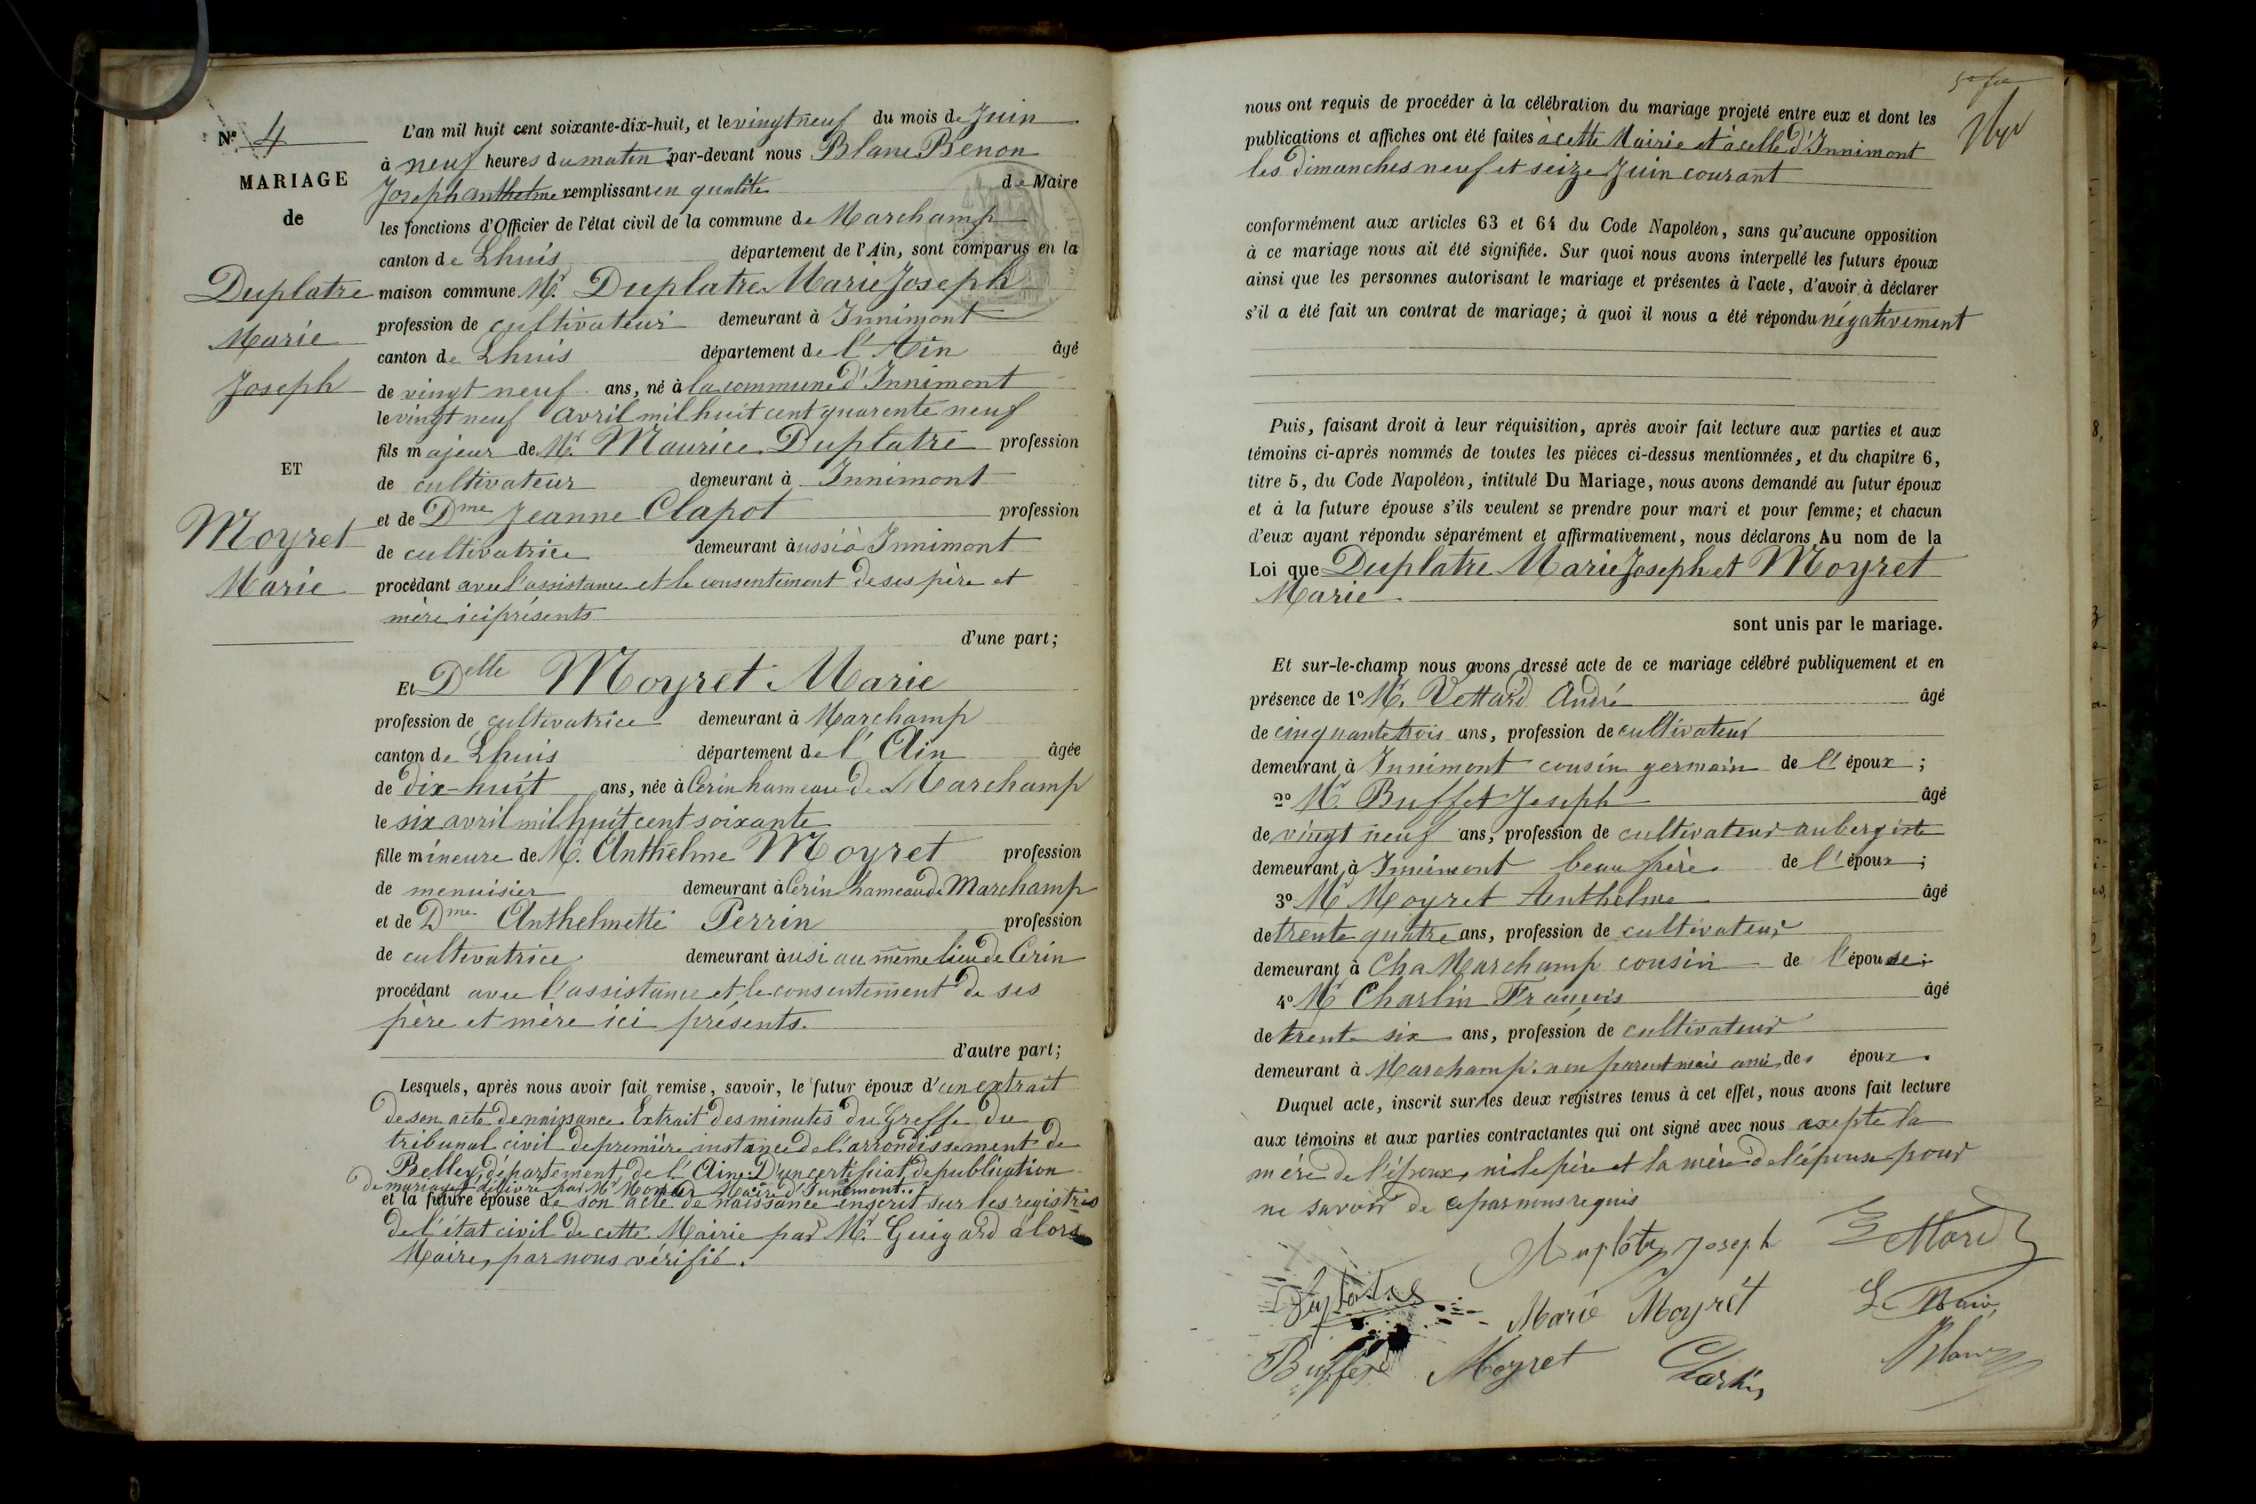 N° 4
MARIAGE
de
Duplatre
Marie
Joseph
ET
Moyret
Marie
L'an mil huit cent soixante-dix-huit, et le vingt neuf du mois de Juin
à neuf heures du matin par-devant nous Blanc Benon
Joseph anthelme remplissant en qualité de Maire
les fonctions d'Officier de l'état civil de la commune de Marchamp
canton de Lhuis département de l'Ain, sont comparus en la
maison commune Mr. Duplatre Marie Joseph
profession de cultivateur demeurant à Innimont
canton de Lhuis département de l'Ain âgé
de vingt neuf ans, né à la commune d'Innimont
le vingt neuf avril mil huit cent quarente neuf
fils majeur de Mr. Maurice Duplatre profession
de cultivateur demeurant à Innimont
et de Dme Jeanne Clapot profession
de cultivatrice demeurant aussi à Innimont
procédant avec l'assistance et le consentement de ses père et
mère ici présents
d'une part;
Et Delle Moyret Marie
profession de cultivatrice demeurant à Marchamp
canton de Lhuis département de l'Ain âgée
de dix-huit ans, née à Cerin hameau de Marchamp
le six avril mil huit cent soixante
fille mineure de Mr. Anthelme Moyret profession
de menuisier demeurant à Cerin hameau de Marchamp
et de Dme Anthelmette Perrin profession
de cultivatrice demeurant àusi au même lieu de Cerin
procédant avec l'assistance et le consentement de ses
père et mère ici présents.
d'autre part;
Lesquels, après nous avoir fait remise, savoir, le futur époux d'un extrait
de son acte de naissance Extrait des minutes du Greffe du
tribunal civil de première instance de l'arrondissement de
Belley, département de l'Ain. D'un certificat de publication
de mariage délivré par Mr Maire d'Innimont.
et la future épouse de son acte de naissance inscrit sur les registres
de l'état civil de cette Mairie par Mr. Guigard alors
Maire, par nous vérifié.
nous ont requis de procéder à la célébration du mariage projeté entre eux et dont les
publications et affiches ont été faites à cette Mairie et à celle d'Innimont
les dimanches neuf et seize Juin courant
conformément aux articles 63 et 64 du Code Napoléon, sans qu'aucune opposition
à ce mariage nous ait été signifiée. Sur quoi nous avons interpellé les futurs époux
ainsi que les personnes autorisant le mariage et présentes à l'acte, d'avoir à déclarer
s'il a été fait un contrat de mariage; à quoi il nous a été répondu négativement
Puis, faisant droit à leur réquisition, après avoir fait lecture aux parties et aux
témoins ci-après nommés de toutes les pièces ci-dessus mentionnées, et du chapitre 6,
titre 5, du Code Napoléon, intitulé Du Mariage, nous avons demandé au futur époux
et à la future épouse s'ils veulent se prendre pour mari et pour femme; et chacun
d'eux ayant répondu séparément et affirmativement, nous déclarons Au nom de la
Loi que Duplatre Marie Joseph et Moyret
Marie
sont unis par le mariage.
Et sur-le-champ nous avons dressé acte de ce mariage célébré publiquement et en
présence de 1° Mr. Vettard André âgé
de cinquante trois ans, profession de cultivateur
demeurant à Innimont cousin germain de l'époux;
2° Mr Buffet Joseph âgé
de vingt neuf ans, profession de cultivateur aubergiste
demeurant à Innimont beau frère de l'époux;
3° Mr Moyret Anthelme âgé
de trente quatre ans, profession de cultivateur
demeurant à Cha Marchamp cousin de l'épouse;
4° Mr Charlin François âgé
de trente six ans, profession de cultivateur
demeurant à Marchamp. non parent mais ami des époux.
Duquel acte, inscrit sur les deux registres tenus à cet effet, nous avons fait lecture
aux témoins et aux parties contractantes qui ont signé avec nous exepté la
mère de l'époux, ni le père et la mère de l'épouse pour
ne savoir de ce par nous requis
Duplâtre Joseph
Duplatre
Marie Moyret
Le Maire
Buffet
Moyret
Charlin
Blanc